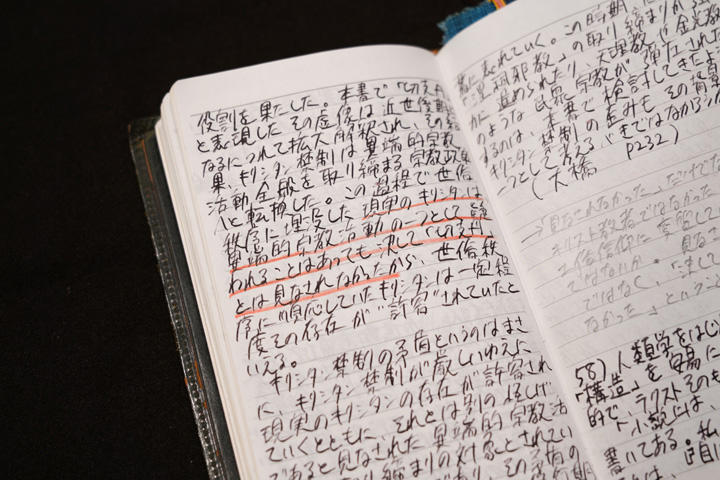 役割を果たした。本書で「切支丹
と表現したその虚像は近世後期に
なるにつれて拡大解釈され、その結
果、キリシタン禁制は異端的宗教
活動全般を取り締まる宗教政策
へと転換した。この過程で世俗
秩序に埋没した現実のキリシタンは
異端的宗教活動の一つとして疑
われることはあっても決して「切支丹
とは見なされなかったから、世俗秩
序に順応していたキリシタンは一定程
度その存在が"許容"されていたと
いえる。
キリシタン禁制の矛盾というのはまさ
に、キリシタン禁制が厳しいゆえに
現実のキリシタンの存在が許容され
ていくとともに、それとは別の怪しげ
であると見なされた異端的宗教活
り締まりの対象とされてい
表れていく。この時期に
「淫祠邪教」の取り締まりが
に進められたり、天理教や金光教
のような民衆宗教が弾圧された
するのは、本書で検討してきたよ
キリシタン禁制の歪みもその背景
一つとして考えるべきではなかろうか
(大橋 P232)
→「見なされなかった」だけで
キリスト教者ではなかった
信仰に変質して
ではないか。見なさ
ではなく、
なかった」という
58)人類学をはじ
「構造」を安易に
的で、テクストそのも
小説上は、
書いてある。私